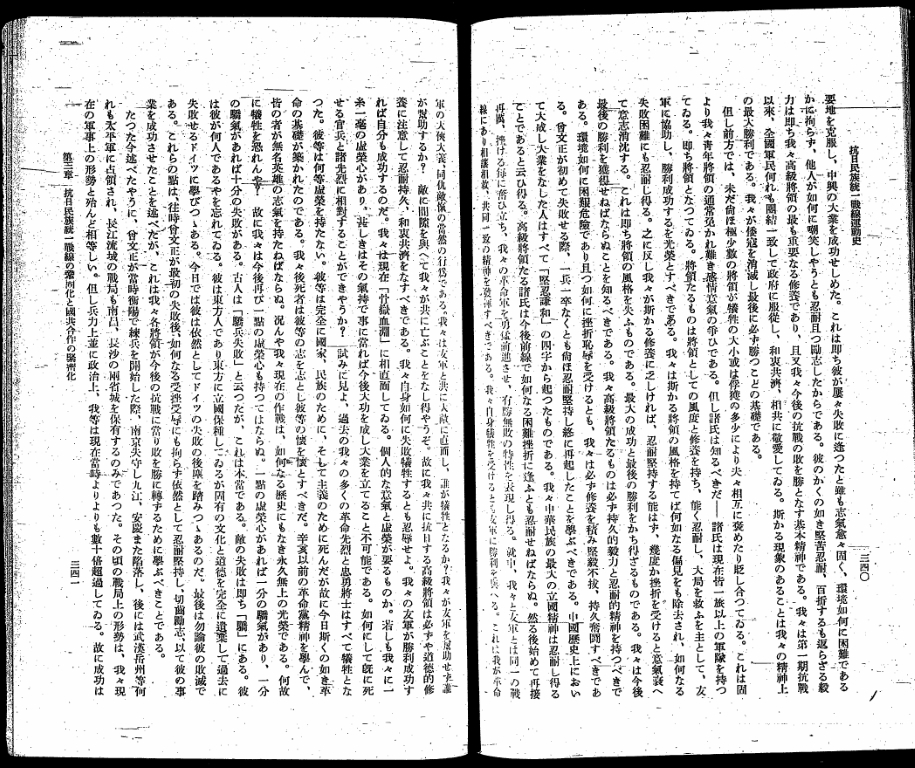 抗日民族統一戰線運動史
三四〇
要地を克服し、中興の大業を成功せしめた。これは卽ち彼が屢々失敗に逢つたと雖も志氣愈々固く、環境如何に困難である
かに拘らず、他人が如何に嘲笑しやうとも忍耐且つ勵志したからである。彼のかくの如き堅苦忍耐、百折するも返らざる毅
力は卽ち我々高級將領の最も重要なる修養であり、且又我々今後の抗戰の敗を勝となす基本精神である。我々は第一期抗戰
以來、全國軍民何れも團結一致して政府に服從し、和衷共濟、相共に敬愛してゐる。斯かる現象のあることは我々の精神上
の最大勝利である。我々が倭寇を消滅し最後に必ず勝つことの基礎である。
但し前方では、未だ尙ほ極少數の將領が犧牲の大小或は俘獲の多少により夫々相互に褒めたり貶し合つてゐる。これは固
より我々靑年將領の通常免かれ難き感情意氣の爭ひである。但し諸氏は知るべきだ――諸氏は現在皆一族以上の軍隊を持つ
てゐる。卽ち將領となつてゐる。將領たるものは將領としての風度と修養を持ち、能く忍耐し、大局を救ふを主として、友
軍に協助し、勝利成功するを光榮とすべきである。我々は斯かる將領の風格を持てば何如なる偏見をも除去され、如何なる
失敗困難にも忍耐し得る。之に反し我々が斯かる修養に乏しければ、忍耐堅持する能はず、幾度か挫折を受けると意氣衰へ
て意志消沈する。これは卽ち將領の風格を失ふものである。最大の成功と最後の勝利をかち得ざるものである。我々は今後
最後の勝利を獲得せねばならぬことを知るべきである。我々高級將領たるものは必ず持久的毅力と忍耐的精神を持つべきで
ある。環境如何に困難危險であり且つ如何に挫折恥辱を受けるとも、我々は必ず修養を積み堅毅不拔、持久奮鬪すべきであ
る。曾文正が初めて失敗せる際、一兵一卒なくとも尙ほ忍耐堅持し終に再起したことを學ぶべきである。中國歷史上におい
て大成し大業をなした人はすべて「堅忍謙和」の四字から起つたものである。我々中華民族の最大の立國精神は忍耐し得る
ことであると云ひ得る。高級將領たる諸氏は今後前線で如何なる困難挫折に逢ふとも忍耐せねばならぬ。然る後始めて再接
再厲、挫ける每に奮ひ立ち、我々の革命軍を勇猛前進させ、有勝無敗の特性を表現し得る。就中、我々と友軍とは同一の戰
線にあり相援相救、共同一致の精神を發揮すべきである。我々自身犧牲を受けるとも友軍に勝利を與へる。これは我が革命
軍の大俠大義、同仇敵愾の當然の行爲である。我々は友軍と共に大敵に直面し、誰が犧牲となるか?我々が友軍を援助せず誰
が援助するか? 敵に間隙を與へて我々が共に亡ぶことをなし得やうぞ。故に我々共に抗日する高級將領は必ずや道德的修
養に注意して忍耐持久、和衷共濟をなすべきである。我々自身如何に失敗犧牲するとも忍辱せよ。我々の友軍が勝利成功す
れば自分も成功するのだ。我々は現在「骨嶽血淵」に相直面してゐる。個人的な意氣と虛榮が要るものか。若しも我々に一
糸一毫の虛榮心があり、甚しきはその氣持で事に當れば今後大功を成し大業を立てること不可能である。如何にして旣に死
せる官兵と諸先烈に相對することができやうか? 試みに見よ、過去の我々の多くの革命先烈と忠勇將士はすべて犧牲とな
つた。彼等は何等虛榮を持たない。彼等は完全に國家、民族のために、そして主義のために死んだが故に今日斯くの如き革
命の基礎が築かれたのである。我々後死者は彼等の志を志とし彼等の懷を懷とすべきだ。辛亥以前の革命黨精神を學んで、
皆の者が無名英雄の志氣を持たねばならぬ。況んや我々現在の作戰は、如何なる歷史にもなき永久無上の光榮である。何故
に犧牲を恐れんや? 故に我々は今後再び一點の虛榮心も持つてはならぬ。一點の虛榮心があれば一分の驕氣があり、一分
の驕氣があれば十分の失敗がある。古人は「驕兵失敗」と云つたが、これは本當である。敵の失敗は卽ち「驕」にある。彼
は彼が何人であるやを忘れてゐる。彼は東方人であり東方に立國保種してゐるが固有の文化と道德を完全に遺棄して過去に
失敗せるドイツに學びつゝあるのだ。今日では彼は依然としてドイツの失敗の後塵を踏みつゝあるのだ。最後は勿論彼の敗滅で
ある。これらの點は、往時曾文正が最初の失敗後、如何なる受挫受辱にも拘らず依然として忍耐堅持し、切齒勵志、以て彼の事
業を成功させたことを述べだが、これは我々各將領が今後の抗戰に當り敗を勝に轉ずるために學ぶべきことである。
たつた今述べたやうに、曾文正が當時衡陽で練兵を開始した際、南京失守し九江、安慶また陷落し、後には武漢岳州等何
れも太平軍に占領され、長江流域の戰局も南昌、長沙の兩省城を保有するのみであつた。その頃の戰局上の形勢は、我々現
在の軍事上の形勢と殆んど相等しい。但し兵力上並に政治上、我等は現在當時よりよりも數十倍超過してゐる。故に成功は
第三章 抗日民族統一戰線の鞏固化と國共合作の緊密化
三四一